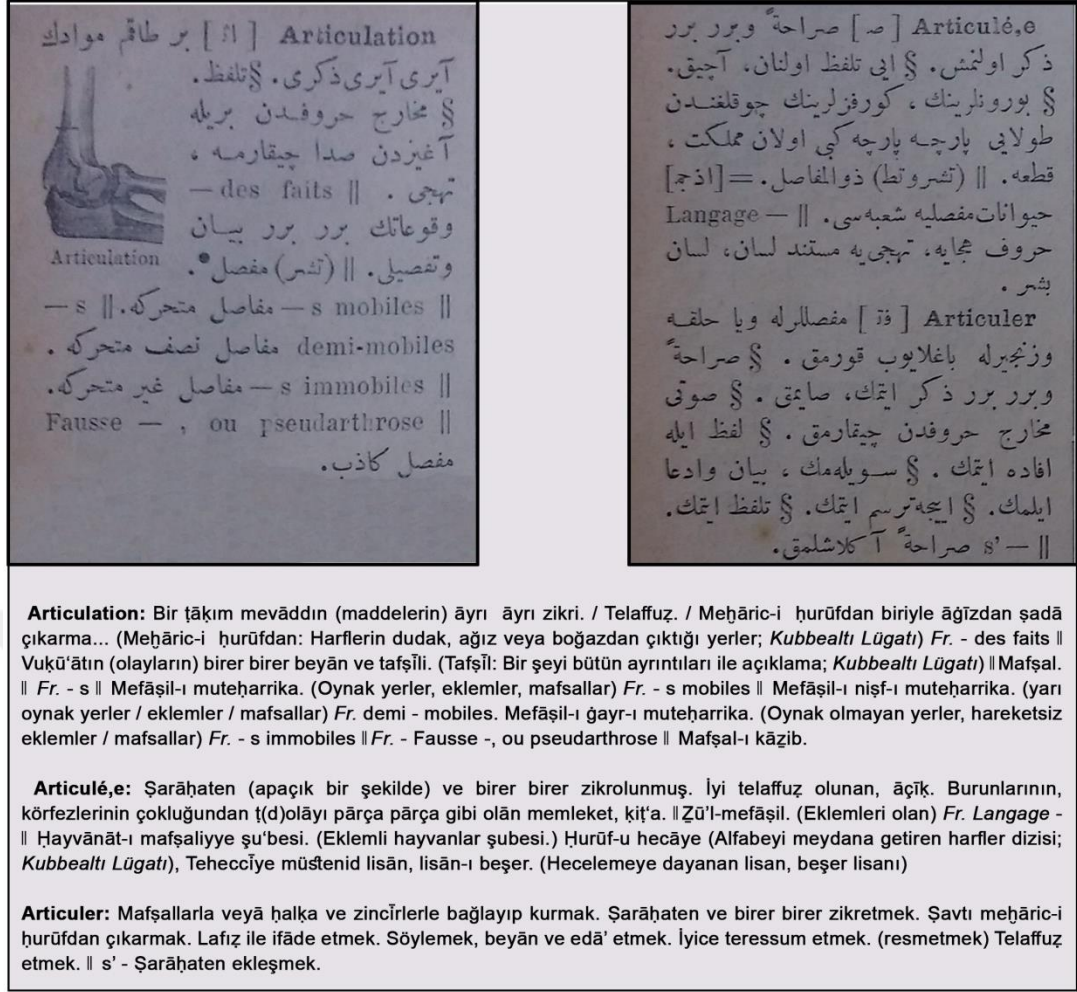 Articulation [ اژ ] بر طاقم موادك
آیری آیری ذکری. § تلفظ.
§ مخارج حروفدن بریله
آغیزدن صدا چیقارمه ،
تهجی . || des faits —
وقوعاتك برر برر بیان
وتفصیلی. || (تشر) مفصل •.
Articulation
|| s mobiles — مفاصل متحرکه. || s —
demi-mobiles مفاصل نصف متحرکه .
|| s immobiles — مفاصل غیر متحرکه.
|| Fausse — , ou pseudarthrose
مفصل کاذب.
Articulé,e [ صـ ] صراحةً وبرر برر
ذکر اولنمش. § ایی تلفظ اولنان، آچیق.
§ بورونلرینك ، کورفزلرینك چوقلغندن
طولایی پارچه پارچه کبی اولان مملکت ،
قطعه. || (تشر وتط) ذوالمفاصل. =[اذجمـ]
حیوانات مفصلیه شعبه سی. || — Langage
حروف هجایه، تهجی یه مستند لسان، لسان
بشر .
Articuler [ فژ ] مفصللرله ویا حلقه
وزنجیرله باغلایوب قورمق . § صراحةً
وبرر برر ذکر ایتمك، صایمق . § صوتی
مخارج حروفدن چیقارمق . § لفظ ایله
افاده ایتمك . § سویله مك ، بیان وادعا
ایلمك. § اییجه ترسم ایتمك. § تلفظ ایتمك.
|| — s’ صراحةً آکلاشلمق.
Articulation: Bir ṭāḳım mevāddın (maddelerin) āyrı āyrı zikri. / Telaffuẓ. / Meḫāric-i ḥurūfdan biriyle āġīzdan ṣadā
çıkarma... (Meḫāric-i ḥurūfdan: Harflerin dudak, ağız veya boğazdan çıktığı yerler; Kubbealtı Lügatı) Fr. - des faits ‖
Vuḳū‘ātın (olayların) birer birer beyān ve tafṣīli. (Tafṣīl: Bir şeyi bütün ayrıntıları ile açıklama; Kubbealtı Lügatı) ‖ Mafṣal.
‖ Fr. - s ‖ Mefāṣil-ı muteḥarrika. (Oynak yerler, eklemler, mafsallar) Fr. - s mobiles ‖ Mefāṣil-ı niṣf-ı muteḥarrika. (yarı
oynak yerler / eklemler / mafsallar) Fr. demi - mobiles. Mefāṣil-ı ġayr-ı muteḥarrika. (Oynak olmayan yerler, hareketsiz
eklemler / mafsallar) Fr. - s immobiles ‖ Fr. - Fausse -, ou pseudarthrose ‖ Mafṣal-ı kāẕib.
Articulé,e: Ṣarāḥaten (apaçık bir şekilde) ve birer birer zikrolunmuş. İyi telaffuẓ olunan, āçīḳ. Burunlarının,
körfezlerinin çokluğundan ṭ(d)olāyı pārça pārça gibi olān memleket, ḳiṭ‘a. ‖ Ẕū’l-mefāṣil. (Eklemleri olan) Fr. Langage -
‖ Ḥayvānāt-ı mafṣaliyye şu‘besi. (Eklemli hayvanlar şubesi.) Ḥurūf-u hecāye (Alfabeyi meydana getiren harfler dizisi;
Kubbealtı Lügatı), Teheccīye müstenid lisān, lisān-ı beşer. (Hecelemeye dayanan lisan, beşer lisanı)
Articuler: Mafṣallarla veyā ḥalḳa ve zincīrlerle bağlayıp kurmak. Ṣarāḥaten ve birer birer zikretmek. Ṣavtı meḫāric-i
ḥurūfdan çıkarmak. Lafıẓ ile ifāde etmek. Söylemek, beyān ve edā’ etmek. İyice teressum etmek. (resmetmek) Telaffuẓ
etmek. ‖ s’ - Ṣarāḥaten ekleşmek.